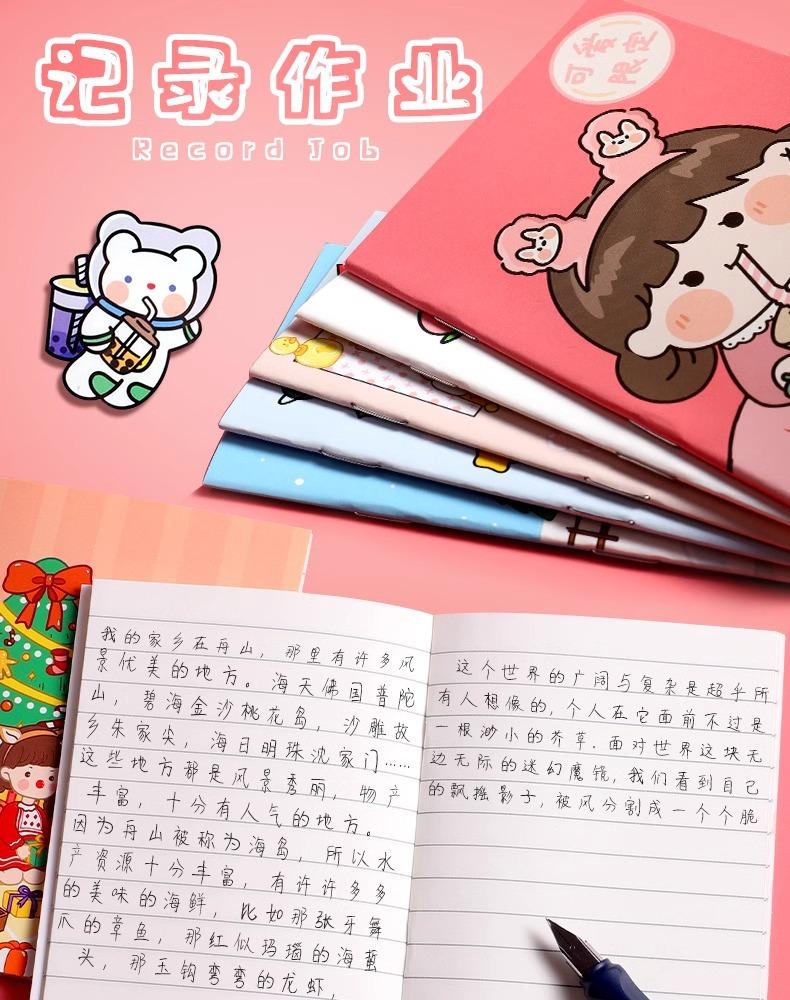 记录作业
Record Job
可爱
限定
我的家乡在舟山，那里有许多风
景优美的地方。海天佛国普陀
山，碧海金沙桃花岛，沙雕故
乡朱家尖，海日明珠沈家门……
这些地方都是风景秀丽，物产
丰富，十分有人气的地方。
因为舟山被称为海岛，所以水
产资源十分丰富，有许许多多
的美味的海鲜，比如那张牙舞
爪的章鱼，那红似玛瑙的海蜇
头，那玉钩弯弯的龙虾，
这个世界的广阔与复杂是超乎所
有人想像的，个人在它面前不过是
一根渺小的芥草．面对世界这块无
边无际的迷幻魔镜，我们看到自己
的飘摇影子，被风分割成一个个脆